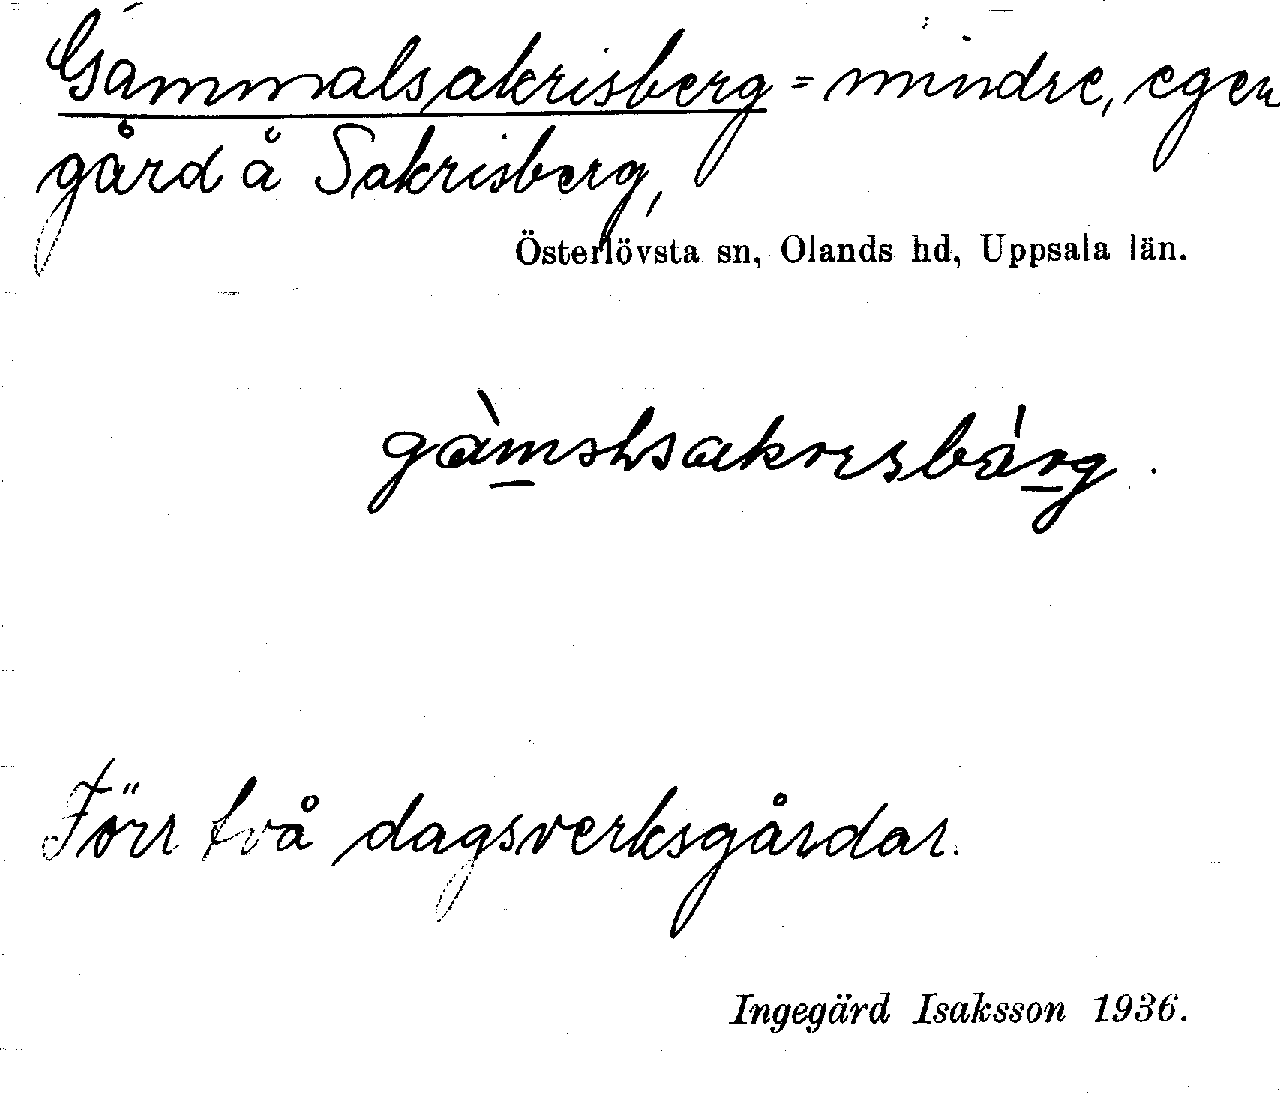 Gammalsakrisberg = mindre, egen
gård å Sakrisberg,
Österlövsta sn, Olands hd, Uppsala län.
Förr två dagsverksgårdar.
Ingegärd Isaksson 1936.